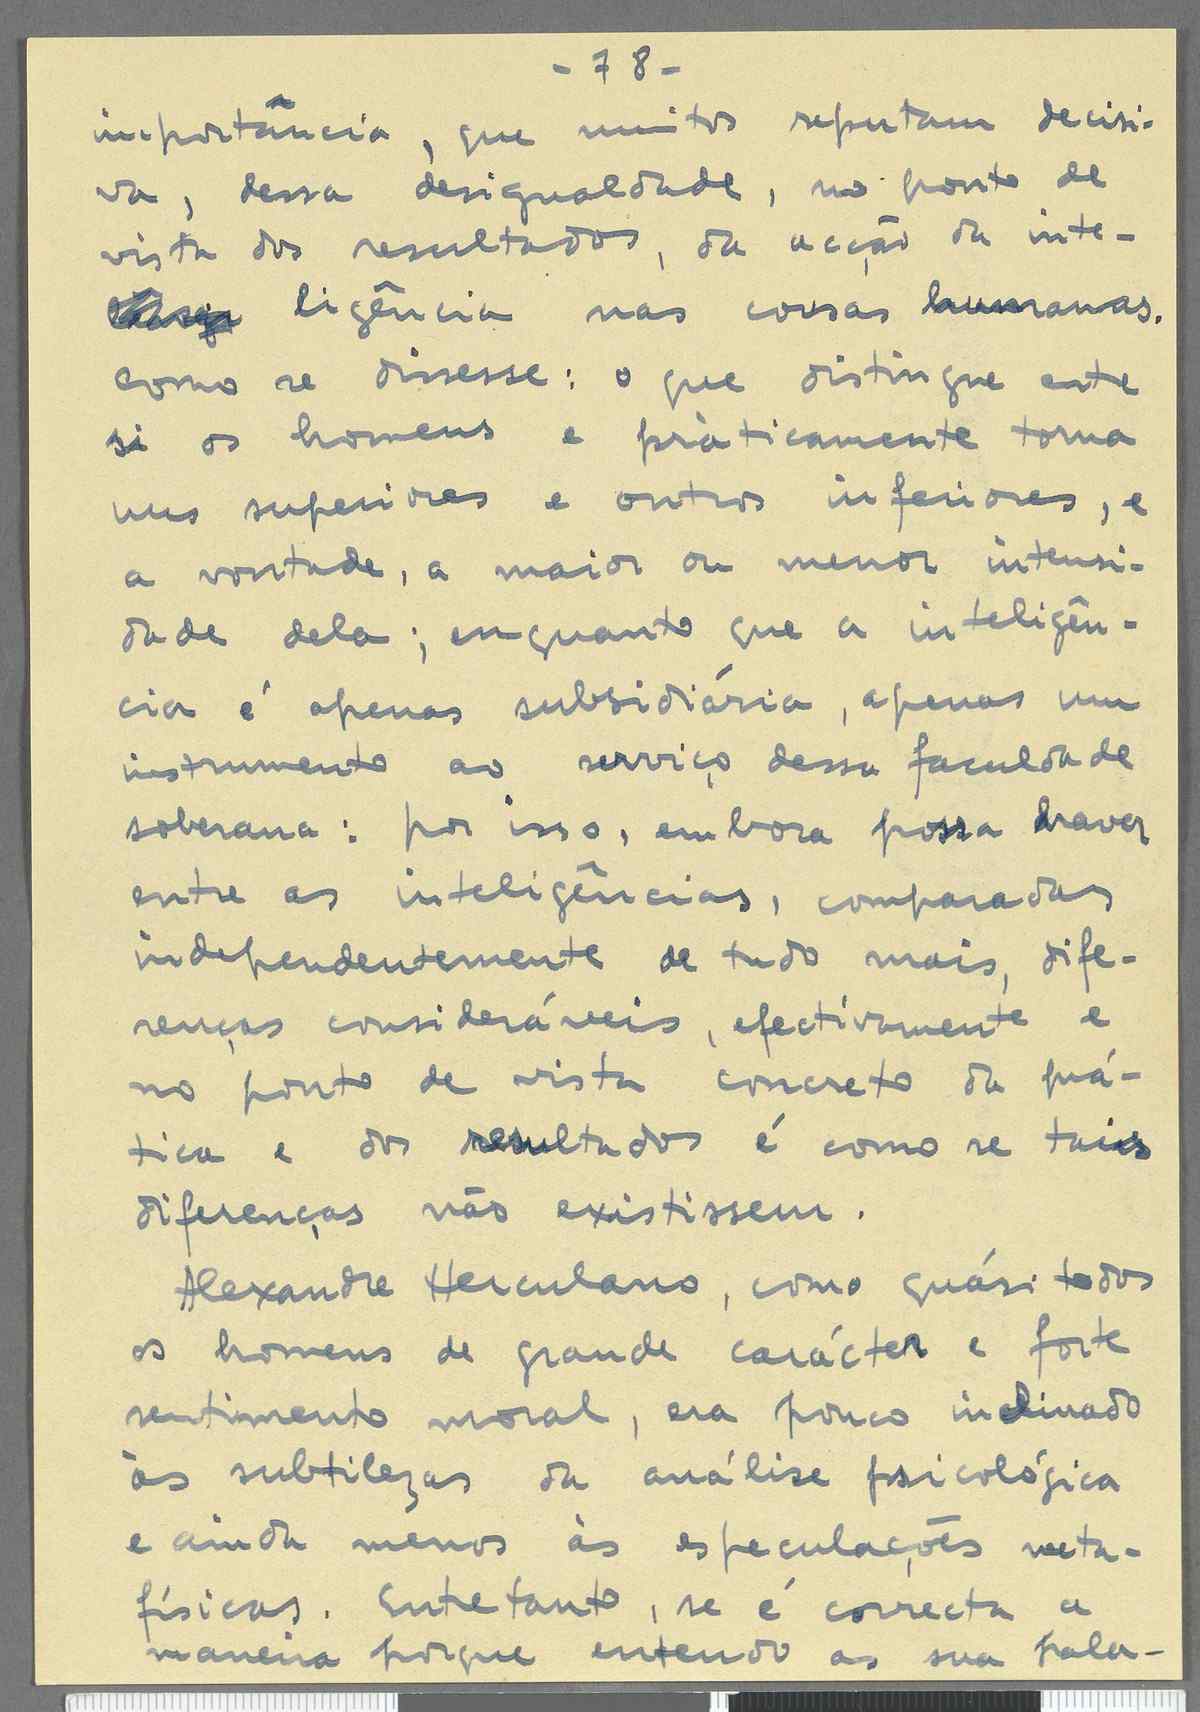 - 78 -
importância, que muitos reputam decisi-
va, dessa desigualdade, no ponto de
vista dos resultados, da acção da inte-
ligência nas cousas humanas.
Como se dissesse: o que distingue ente
si os homens e pràticamente torna
uns superiores e outros inferiores, e
a vontade, a maior ou menor intensi-
dade dela; enquanto que a inteligên-
cia é apenas subsidiária, apenas um
instrumento ao serviço dessa faculdade
soberana: por isso, embora possa haver
entre as inteligências, comparadas
independentemente de tudo mais, dife-
renças consideráveis, efectivamente e
no ponto de vista concreto da prá-
tica e dos resultados é como se tais
diferenças não existissem.
Alexandre Herculano, como quási todos
os homens de grande carácter e forte
sentimento moral, era pouco inclinado
às subtilezas da análise psicológica
e ainda menos às especulações meta-
físicas. Entretanto, se é correcta a
maneira porque entendo as sua pala-